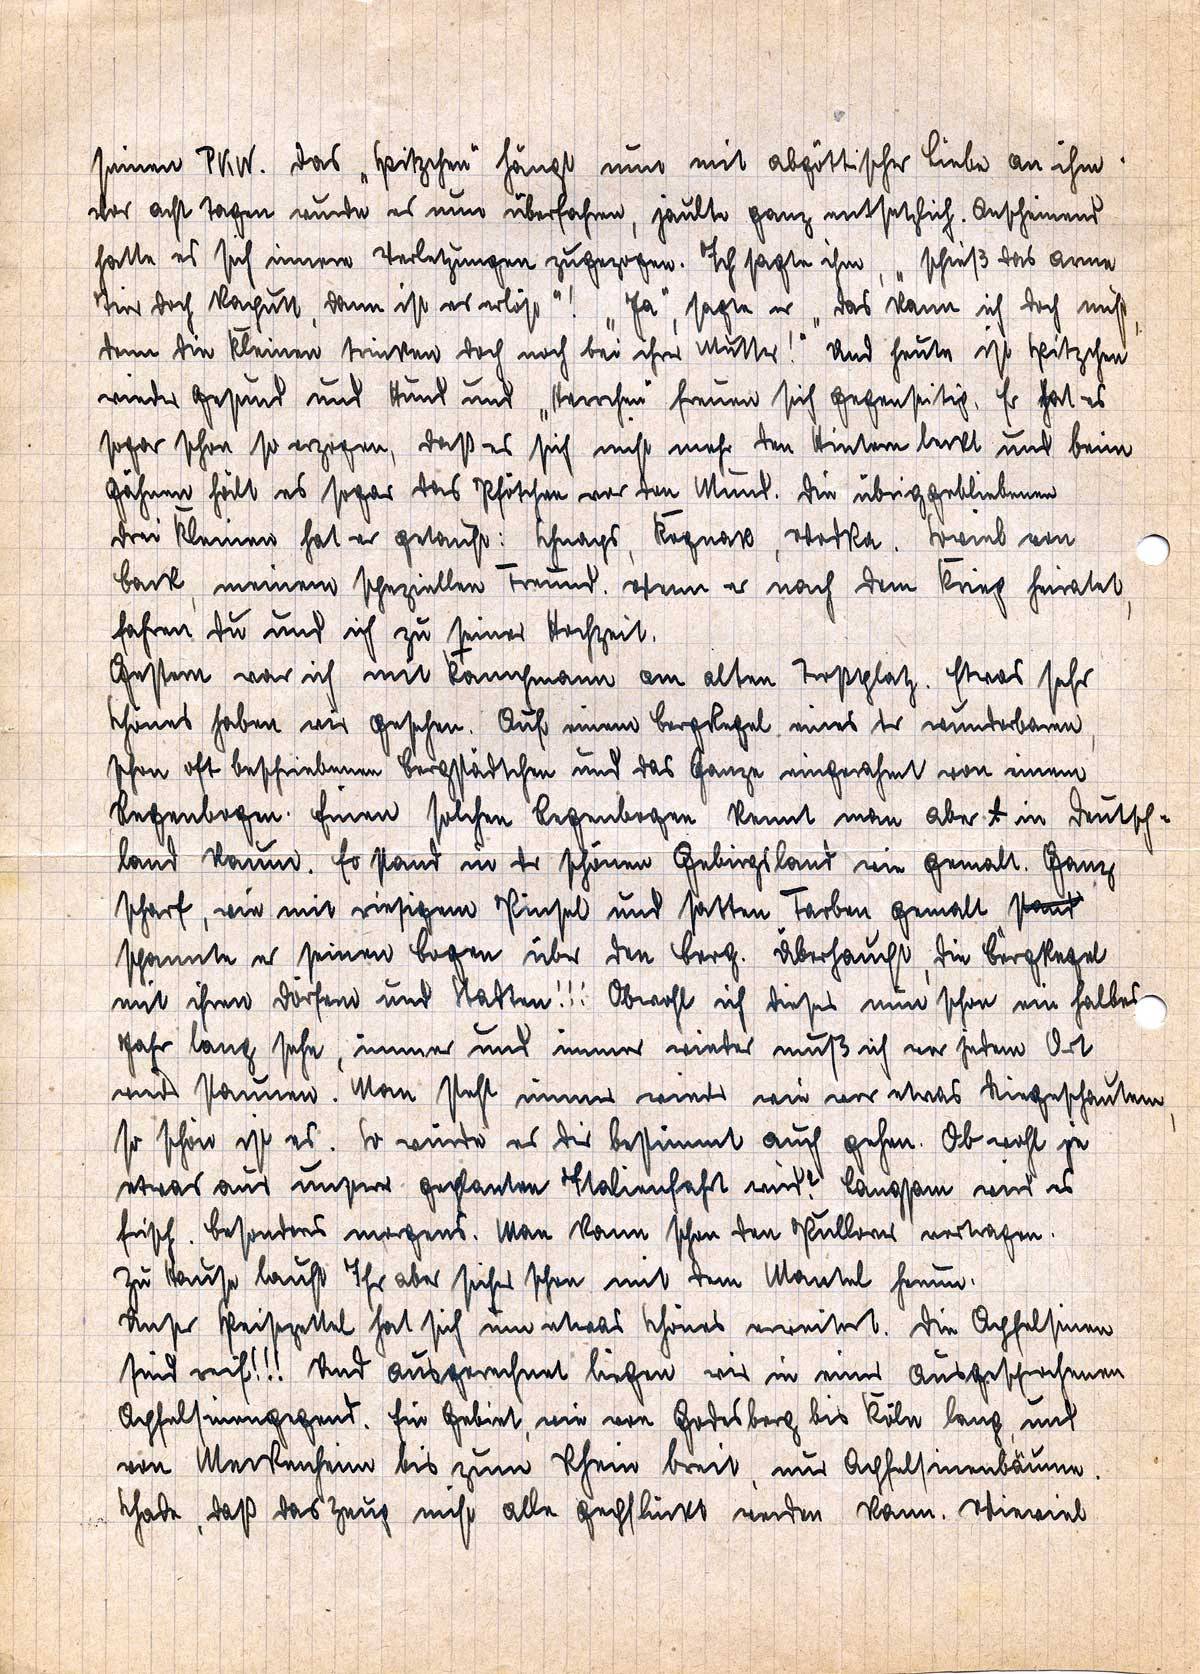 seinen PKW. Das „Spitzchen" hängt nun mit abgöttischer Liebe an ihm.
Vor acht Tagen wurde es nun überfahren, jaulte ganz entsetzlich. Anscheinend
hatte es sich innere Verletzungen zugezogen. Ich sagte ihm, „schieß das arme
Tier doch kaputt, dann ist es erlöst"! „Ja", sagte er „das kann ich doch nicht,
denn die Kleinen trinken doch noch bei ihrer Mutter!" Und heute ist Spitzchen
wieder gesund und Hund und „Herrchen" freuen sich gegenseitig. Er hat es
sogar schon so erzogen, daß es sich nicht mehr den Hintern leckt und beim
Gähnen hält es sogar das Pfötchen vor den Mund. Die übriggebliebenen
drei Kleinen hat er getauft: Schnaps, Kognak, Wodka. Soviel von
Back, meinem speziellen Freund. Wenn er nach dem Krieg heiratet,
fahren Du und ich zu seiner Hochzeit.
Gestern war ich mit Kannemann am alten Platz. Etwas sehr
Schönes haben wir gesehen. Auf einem Bergkegel eines der wunderbaren,
schon oft beschriebenen Bergstädtchen und das Ganze eingerahmt von einem
Regenbogen. Einen solchen Regenbogen kennt man aber in Deutsch-
land kaum. Er stand in der schönen Gebirgsland wie gemalt. Ganz
scharf, wie mit riesigem Pinsel und satten Farben gemalt stand
spannte er seinen Bogen über den Berg. Überhaupt, die Bergkegel
mit ihren Dörfern und Städten!!! Obwohl ich dieses nun schon ein halbes
Jahr lang sehe, immer und immer wieder muß ich vor jedem Ort
neu staunen. Man steht immer wieder wie vor etwas Niegeschautem,
so schön ist es. So würde es Dir bestimmt auch gehen. Ob wohl je
etwas aus unserer geplanten Italienfahrt wird? Langsam wird es
frisch. Besonders morgens. Man kann schon den Pullover vertragen.
Zu Hause lauft Ihr aber sicher schon mit dem Mantel herum.
Unser Speisezettel hat sich um etwas Schönes erweitert. Die Apfelsinen
sind reif!!! Und ausgerechnet liegen wir in einer ausgesprochenen
Apfelsinengegend. Ein Gebiet, wie von Godesberg bis Köln lang, und
von Meckenheim bis zum Rhein breit, nur Apfelsinenbäume.
Schade, daß das Zeug nicht alle gepflückt werden kann. Wieviel